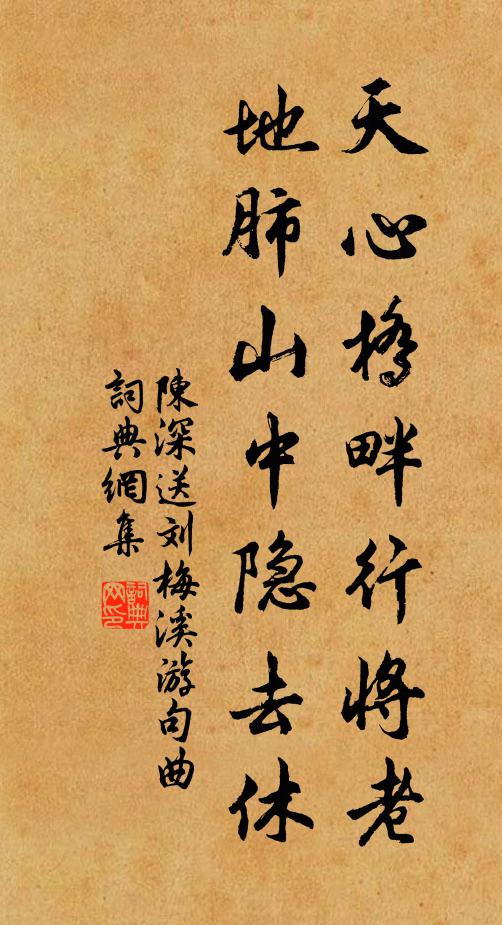 天心橋畔行將老
地肺山中隐去休
陳深送刘梅溪游句曲
詞典網集
詞典
网印